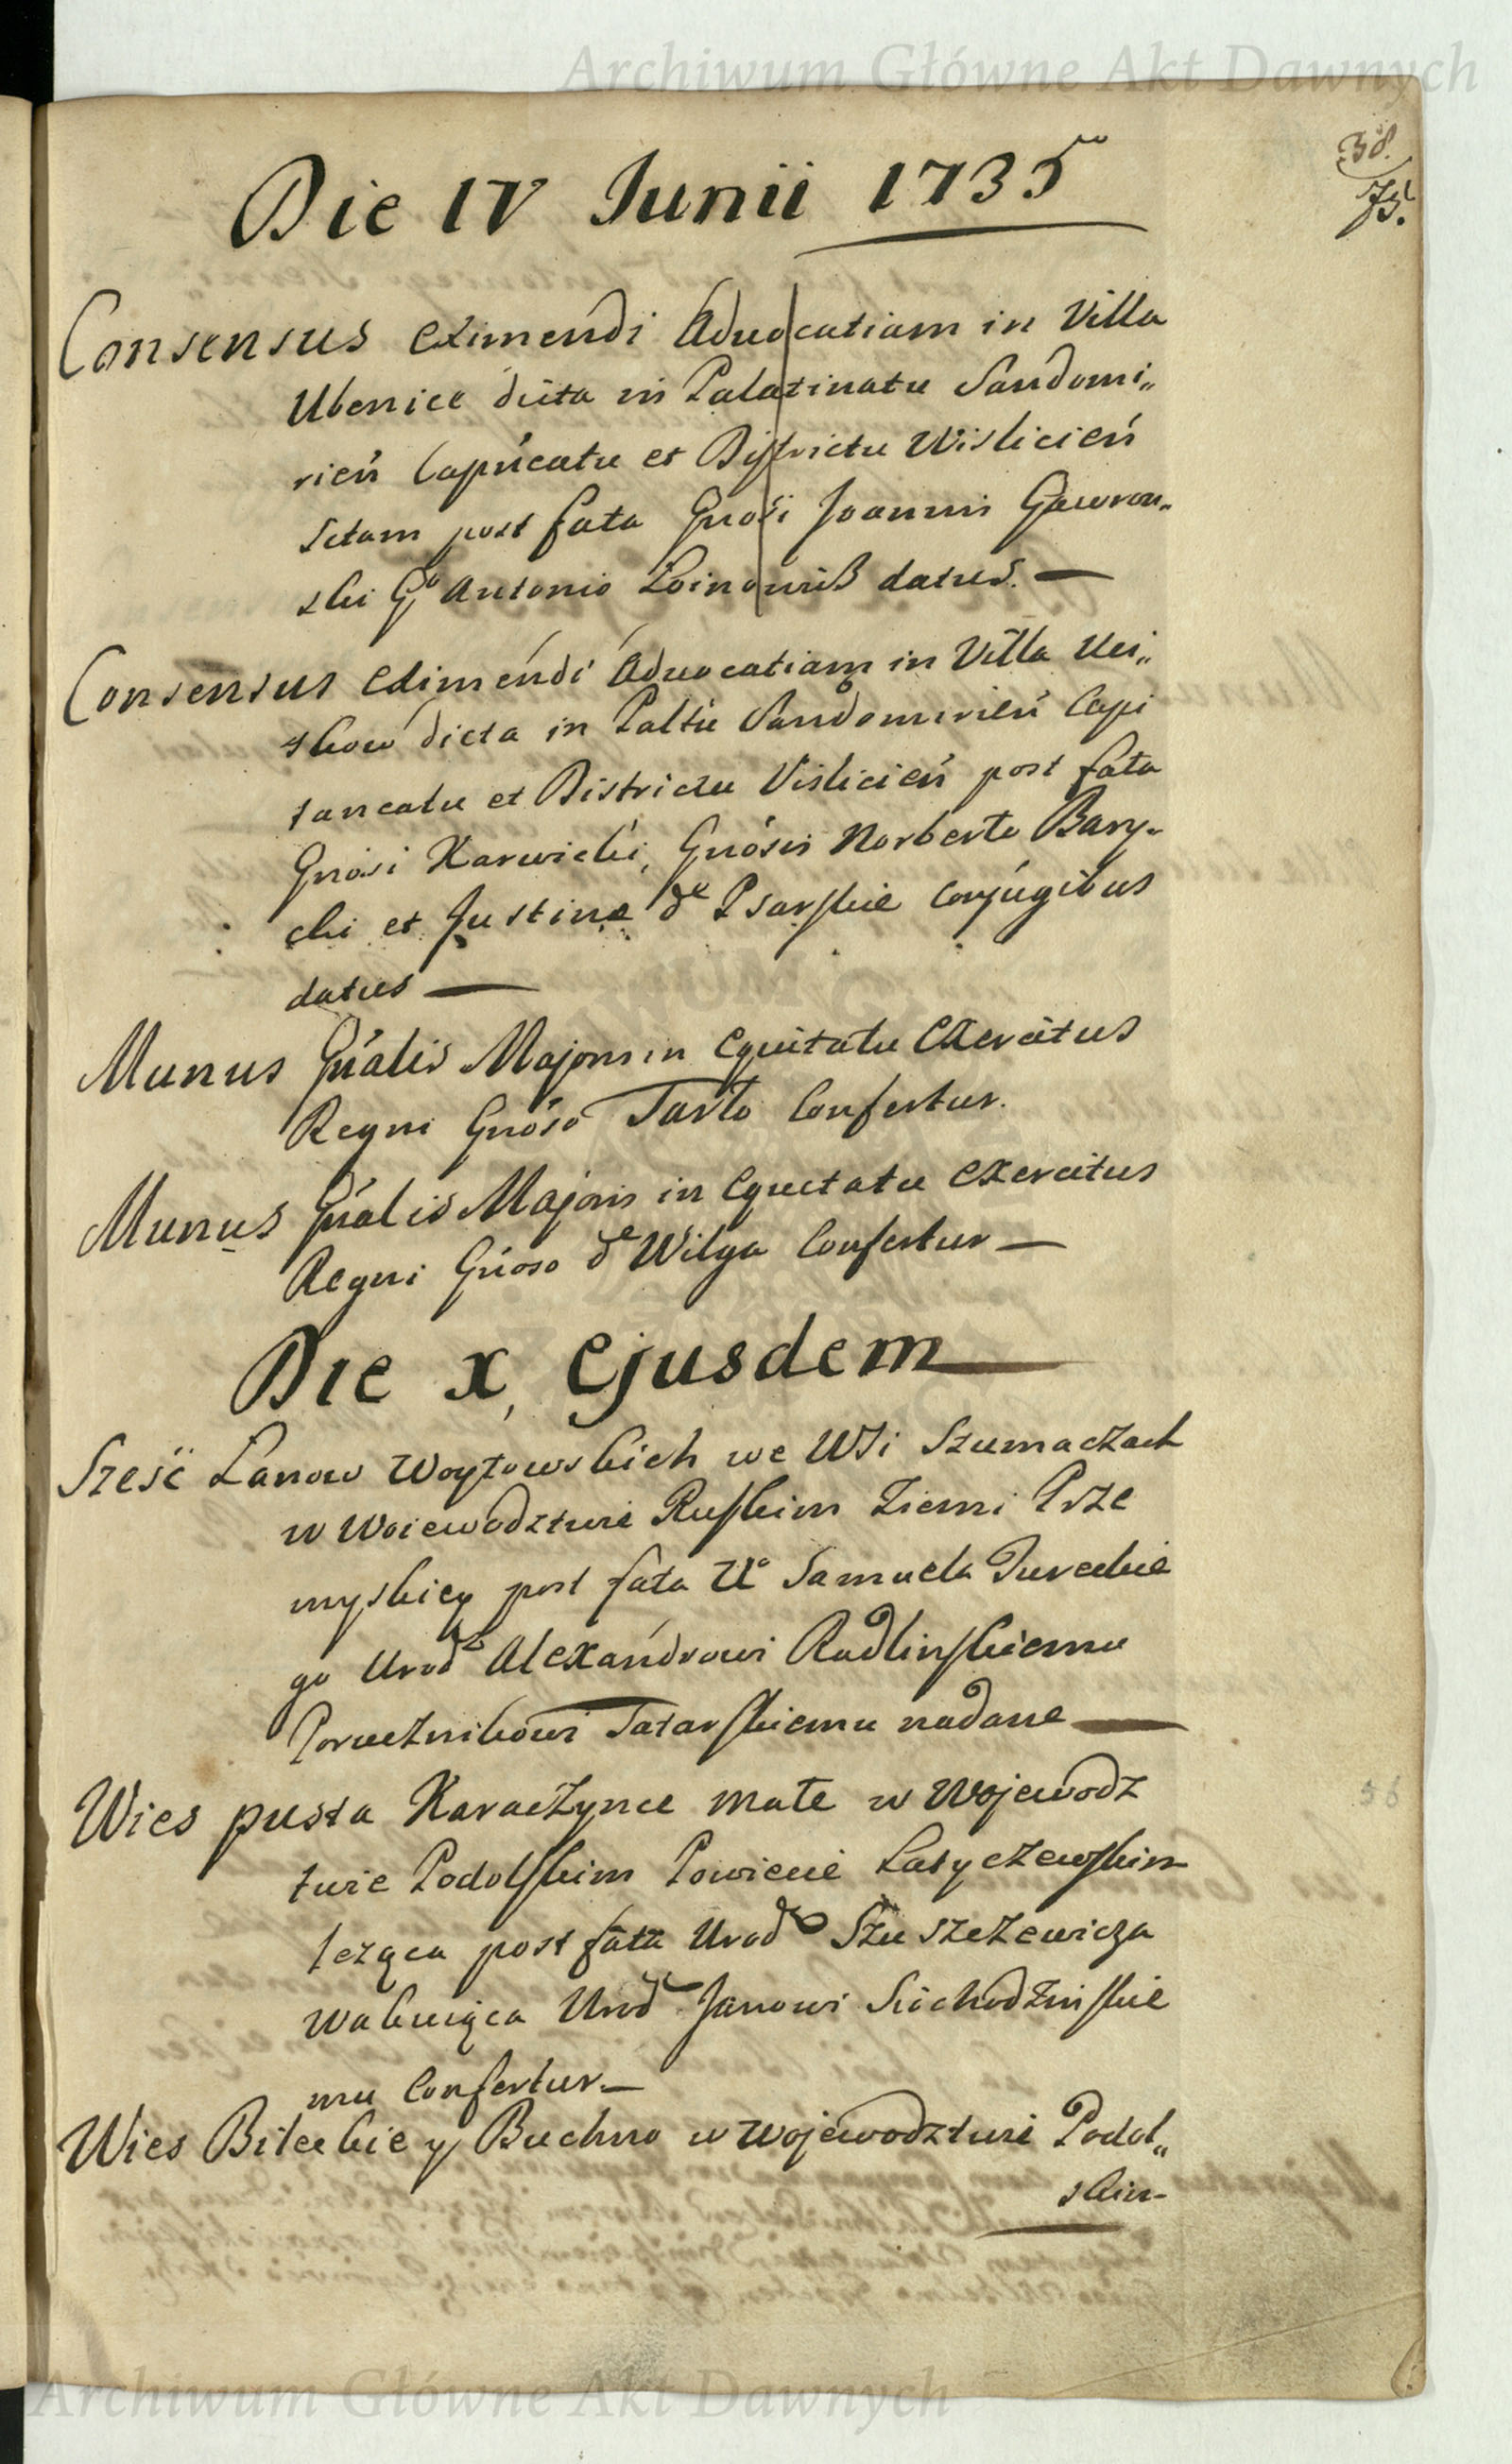 Archiwum Główne Akt Dawnych
38.
75.
Die IV Junii 1735to
Consensus eximendi Advocatiam in Villa
Ubenice dicta in Palatinatu Sandomi„
rień Capńeatu et Districtu Wislicień
sitam post fata Gnosi Joannis Gawron„
ski Go Antonio datus. —
Consensus eximendi Advocatiam in Villa Uci„
skow dicta in Paltu Sandomirień Capi
taneatu et Districtu Vislicień post fata
Gnosi Karwicki, Gnosis Norberto Bary„
cki et Justinae de Psarskie conjugibus
datus —
Munus Gnalis Majoris in Equitatu Exercitus
Regni Gnoso Tarło Confertur.
Munus Gnalis Majoris in Equitatu Exercitus
Regni Gnoso de Wilga Confertur —
Die X, Ejusdem
Sześć Łanow Woytowskich we Wsi Szumaczach
w Woiewodztwie Ruskim Ziemi Prze
myskiey post fata Uo Samuela Tureckie
go Urodz Alexandrowi Radlinskiemu
Porucznikowi Tatarskiemu nadane —
Wies pusta Karaczynce małe w Wojewodz
twie Podolskim Powiecie Latyczewskim
leząca post fata Urodzo Szuszczewicza
wakuiąca Urodz Janowi Suchodzinskie
mu Confertur —
Wies Biteckie y Buchno w Wojewodztwie Podol„
skim
Archiwum Główne Akt Dawnych